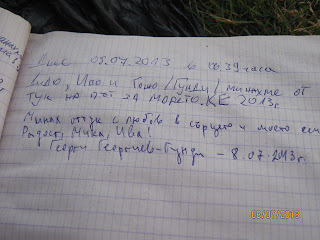 Днес 08.07.2013 в 06,39 часа
Иво и Гошо /Гунди/ минахме от
тук на път за морето. КЕ 2013г.
Минах оттук с любов в сърцето и моето сем
Радост, Мика, Ива!
Георги Георгиев-Гунди - 8.07.2013г.
09/07/2013